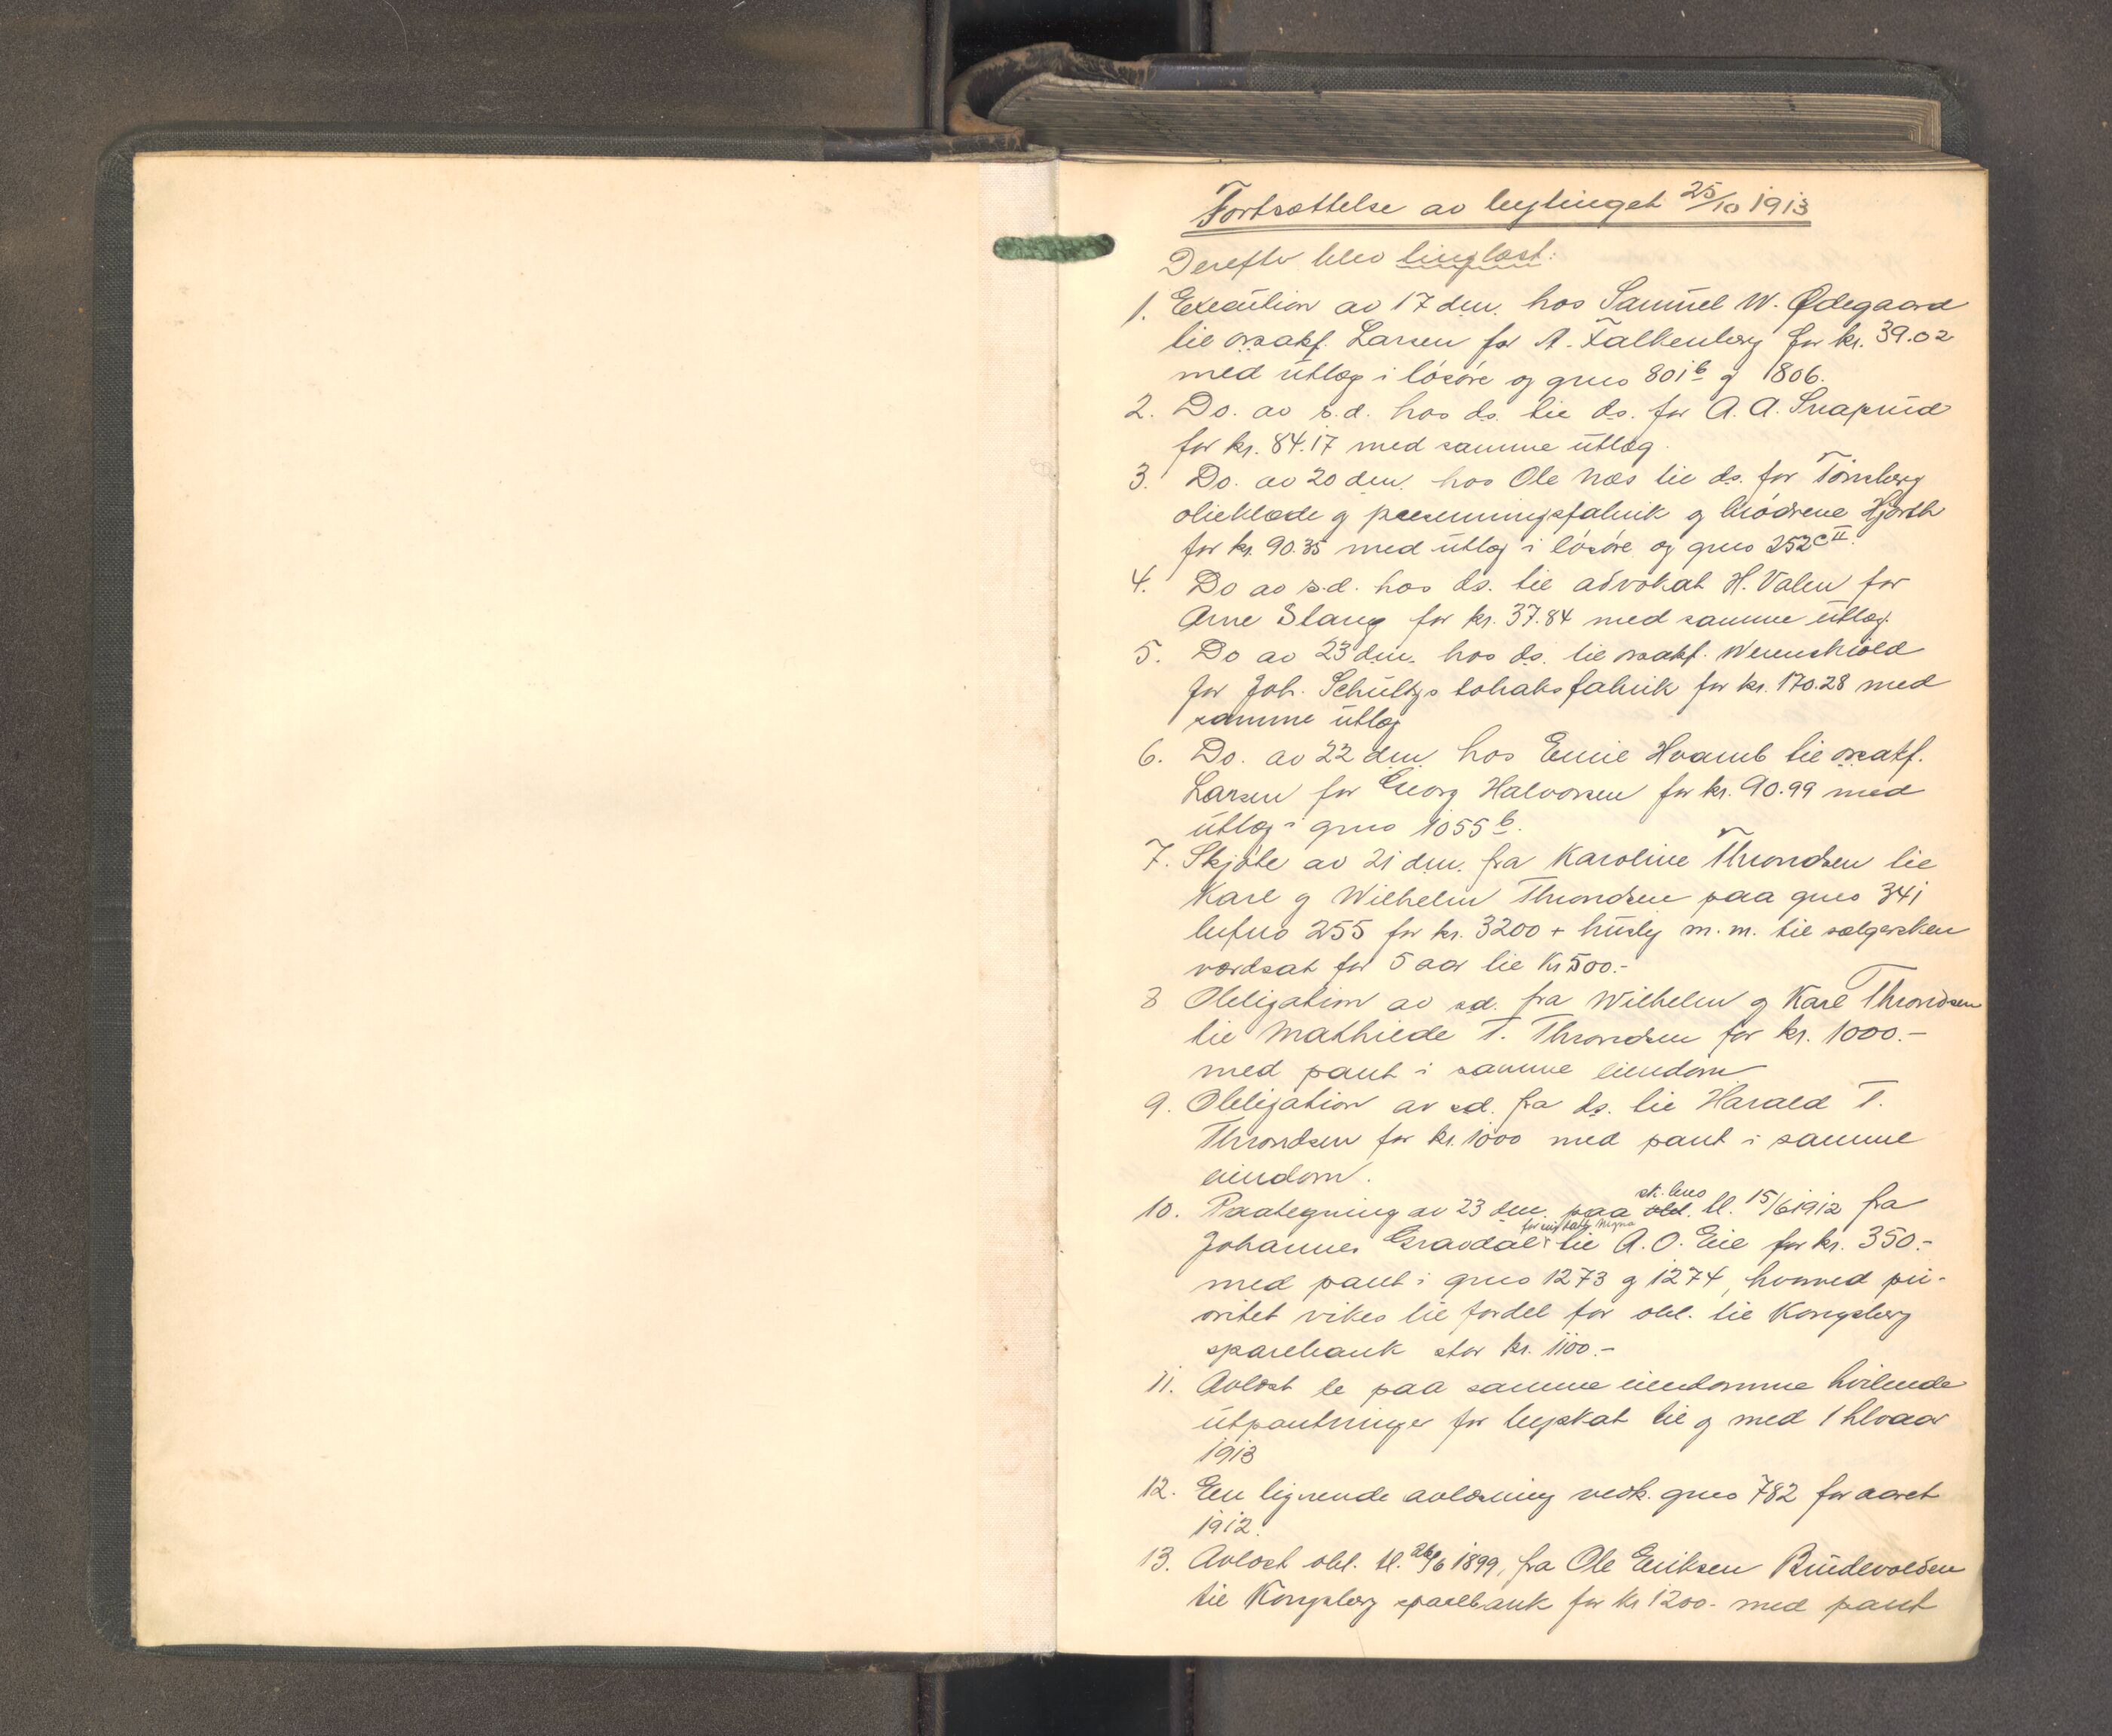 Fortsættelse av bytinget 25/10 1913
Derefter blev tinglæst:
1. Execution av 17 dm. hos Samuel W. Ødegaard
til orsakf. Larsen for A. Falkenberg for kr. 39.02
med utlæg i løsøre og grno 801b og 1806.
2. Do. av s.d. hos ds. til ds. for A. A. Snaprud
for kr. 84.17 med samme utlæg.
3. Do. av 20 dm. hos Ole Næs til ds. for Tønsberg
olieklæde og presenningsfabrik og brødrene Hjorth
for kr. 90.35 med utlæg i løsøre og grno 252c II.
4. Do av s.d. hos ds. til advokat H. Valen for
Arne Slang for kr. 37.84 med samme utlæg.
5. Do av 23 dm. hos ds. til orsakf. Werenskiold
for Joh. Schultz's tobaksfabrik for kr. 170.28 med
samme utlæg
6. Do. av 22 dm. hos Emil Hvamb til orsakf.
Larsen for Georg Halvorsen for kr. 90.99 med
utlæg i grno 1055 b.
7. Skjøte av 21 dm. fra Karoline Throndsen til
Karl og Wilhelm Throndsen paa grno 341
bufno 255 for kr. 3200 + husly m.m. til sælgersken
værdsat for 5 aar til Kr 500.-
8 Obligation av sd. fra Wilhelm og Karl Throndsen
til Mathilde T. Throndsen for kr. 1000.-
med pant i samme eiendom
9. Obligation av sd. fra ds. til Harald T.
Throndsen for kr. 1000 med pant i samme
eiendom.
10. Paategning av 23 dm. paa obl. sk. brev tl. 15/6 1912 fra
Johannes Gravdal til A. O. Eie for kr. 350.-
med pant i grno 1273 og 1274, hvorved pri-
oritet vikes til fordel for obl. til Kongsberg
sparebank stor kr. 1100.-
11. Avlæst de paa samme eiendomme hvilende
utpantninger for byskat til og med 1 hlvaar
1913
12. En lignende avlæsning vedk. grno 782 for aaret
1912.
13. Avlæst obl. tl. 26/6 1899, fra Ole Eriksen Rudevolden
til Kongsberg sparebank for kr 1200.- med pant